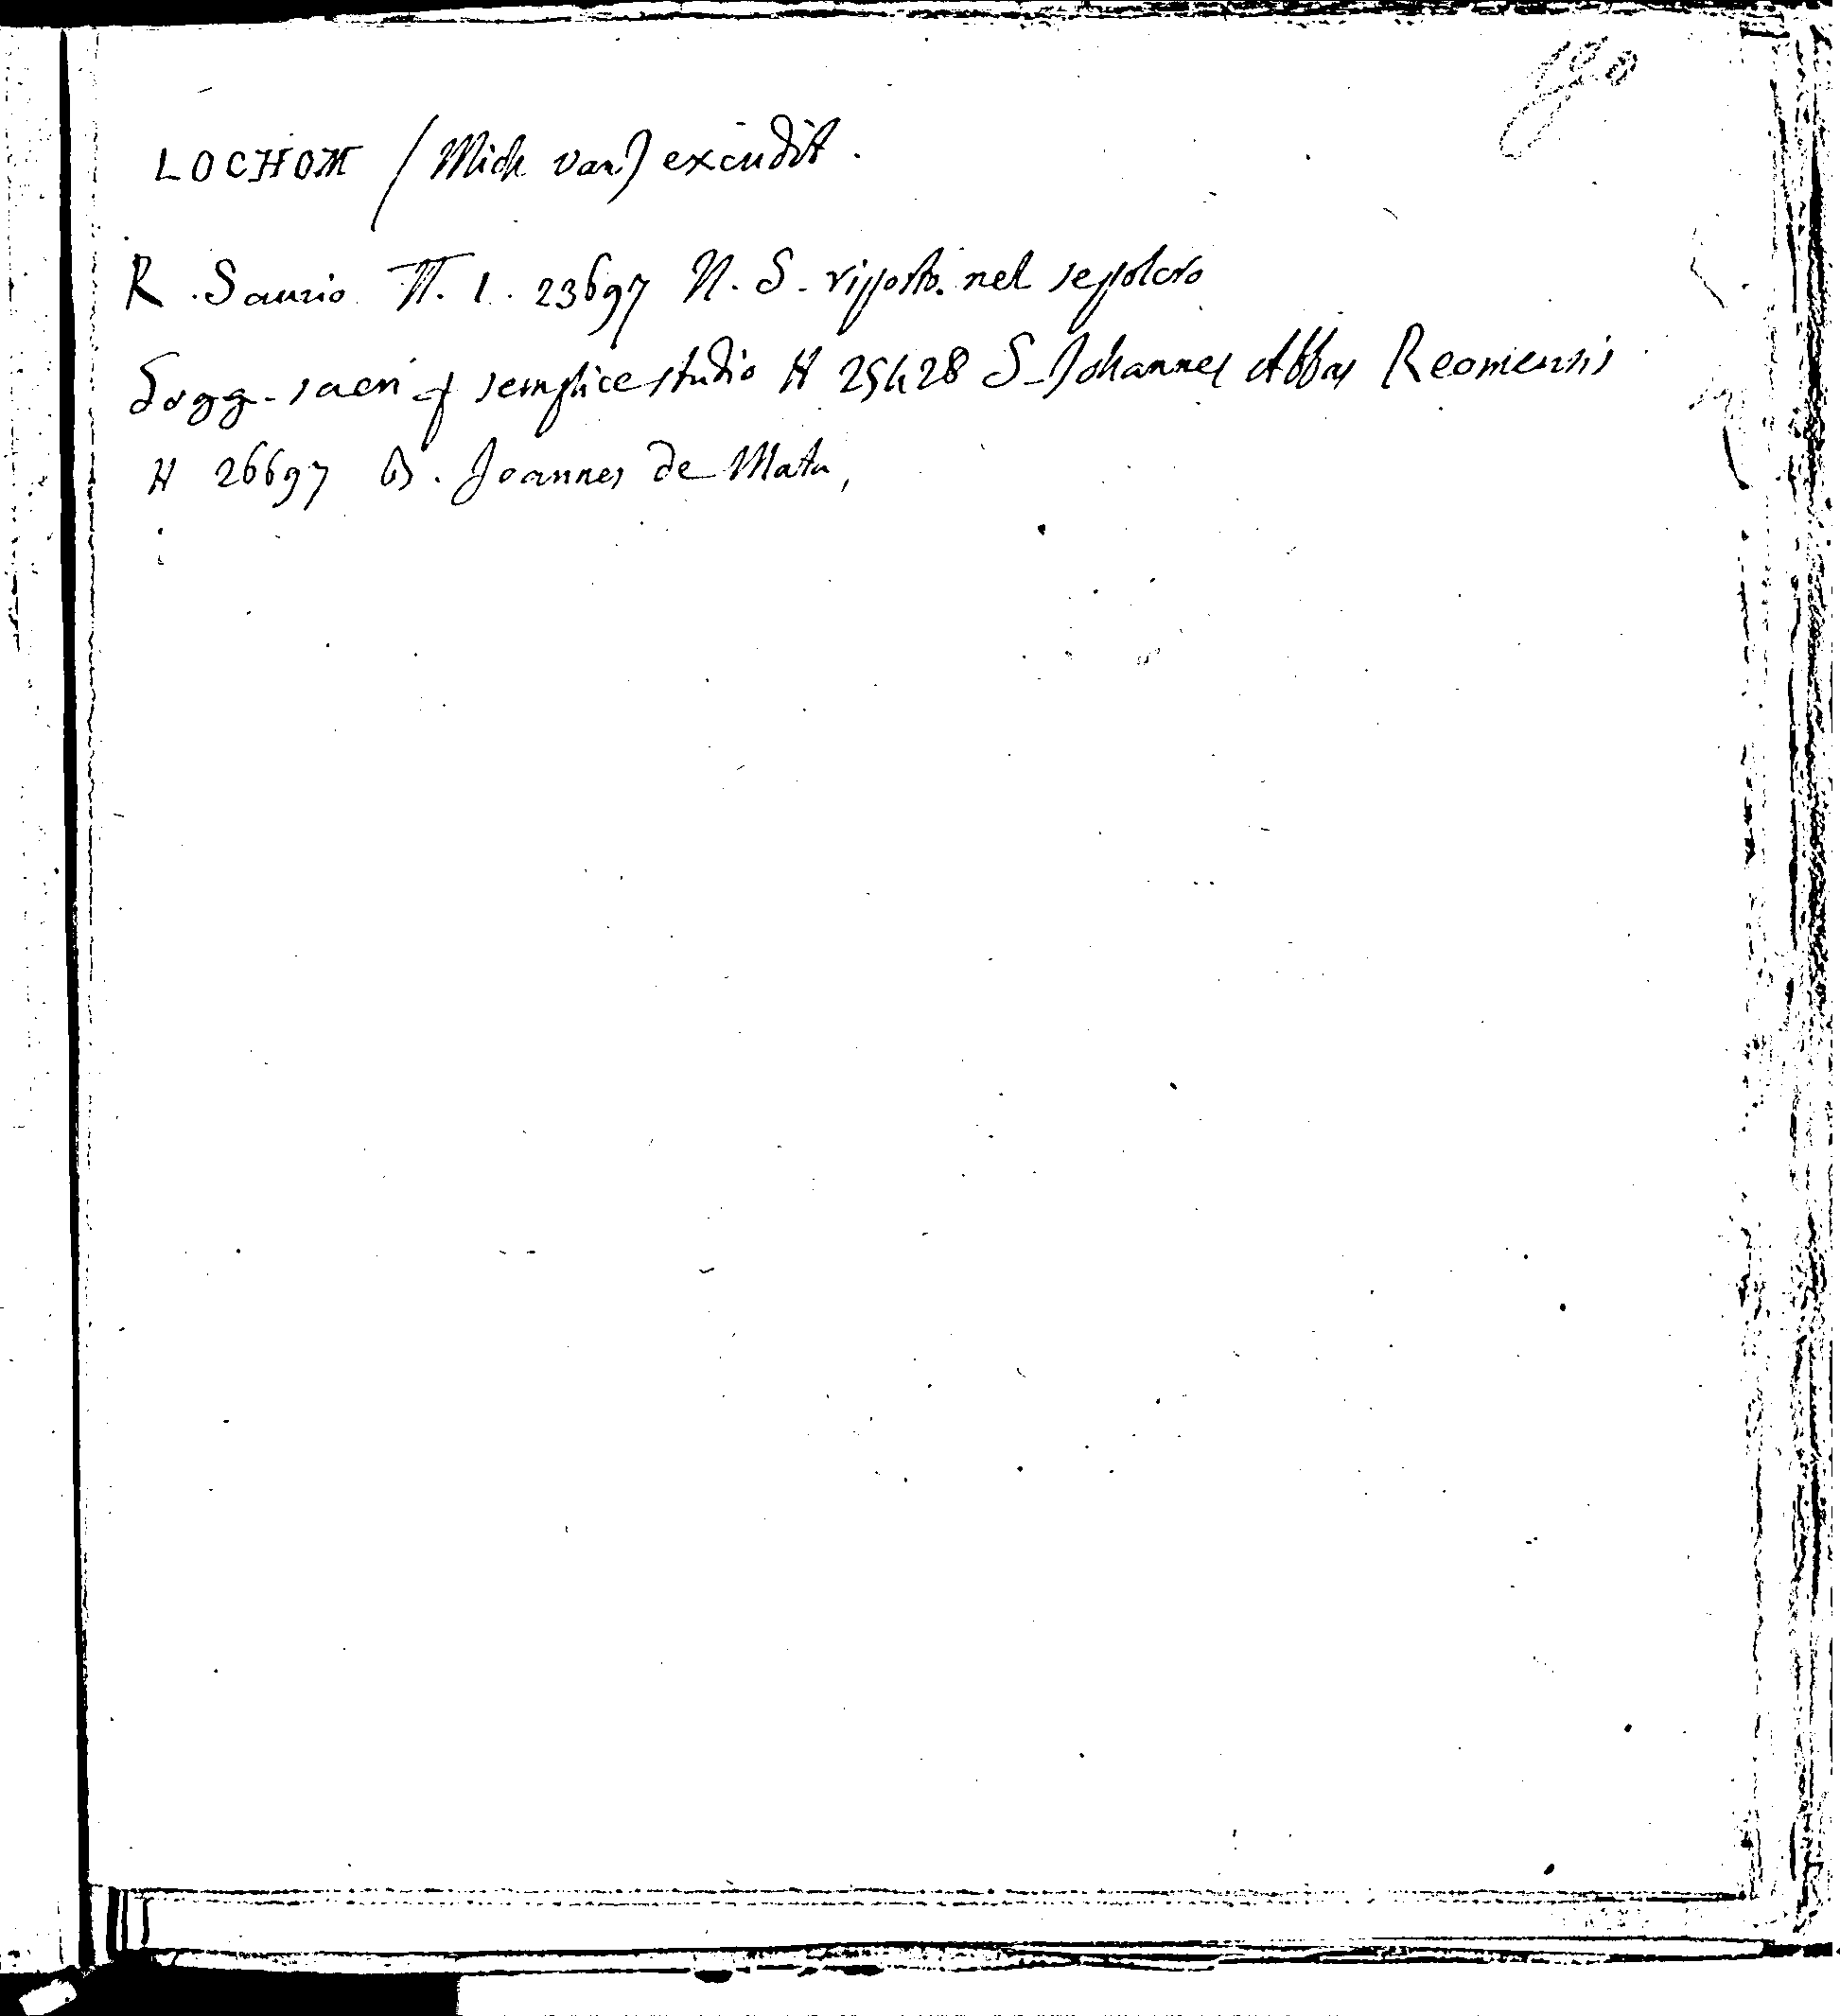 190
LOCHOM (Mich van) excudit.
R. Sanzio TT. 1. 23697 N. S. riposto nel sepolcro
Sogg. sacri p semplice studio H 25428 S. Johannes Abbas Reomensis
H 26697 B. Joannes de Mata,